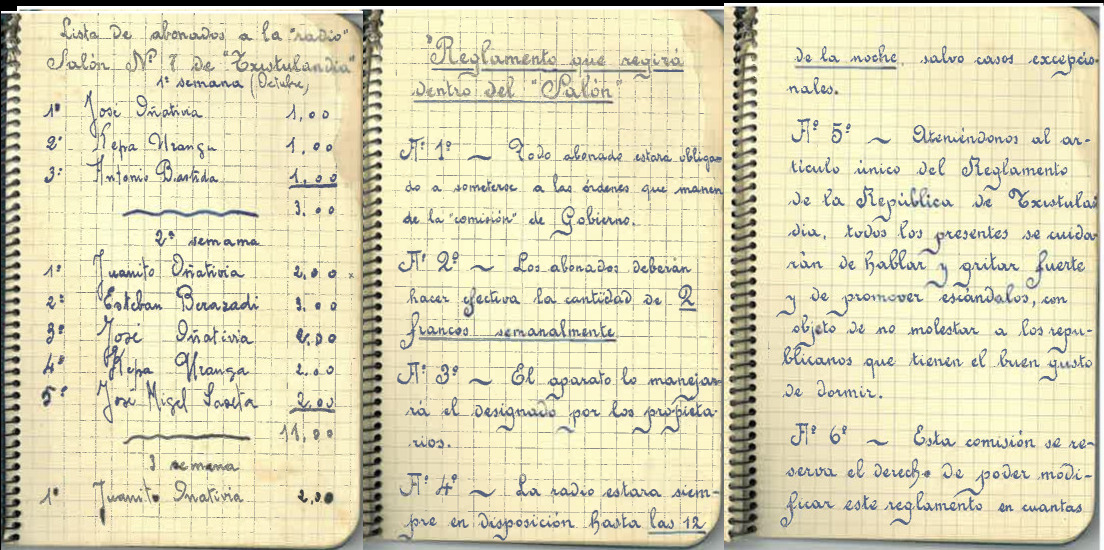 Lista de abonados a la "radio"
Salón Nº 7 de "Txistulandia"
1ª semana (Octubre)
1º José Oñativia 1,00
2º Kepa Uranga 1,00
3º Antonio Bastida 1,00
3.00
2ª semama
1º Juanito Oñativia 2,00
2º Esteban Berazadi 3.00
3º José Oñativia 2,00
4º Kepa Uranga 2.00
5º José Migel Laseta 2,00
11,00
3 semana
1º Juanito Oñativia 2,00
"Reglamento que regirá
dentro del "Salón"
Aº 1º ~ Todo abonado estará obliga-
do a someterse a las órdenes que manen
de la "comisión" de Gobierno.
Aº 2º ~ Los abonados deberán
hacer efectiva la cantidad de 2
francos semanalmente
Aº 3º ~ El aparato lo maneja-
rá el designado por los propieta-
rios.
Aº 4º ~ La radio estara siem-
pre en disposición hasta las 12
de la noche, salvo casos excepcio-
nales.
Aº 5º ~ Ateniéndonos al ar-
tículo único del Reglamento
de la República de Txistulan-
dia, todos los presentes se cuida-
rán de hablar y gritar fuerte
y de promover escándalos, con
objeto de no molestar a los repu-
blicanos que tienen el buen gusto
de dormir.
Aº 6º ~ Esta comisión se re-
serva el derecho de poder modi-
ficar este reglamento en cuantas